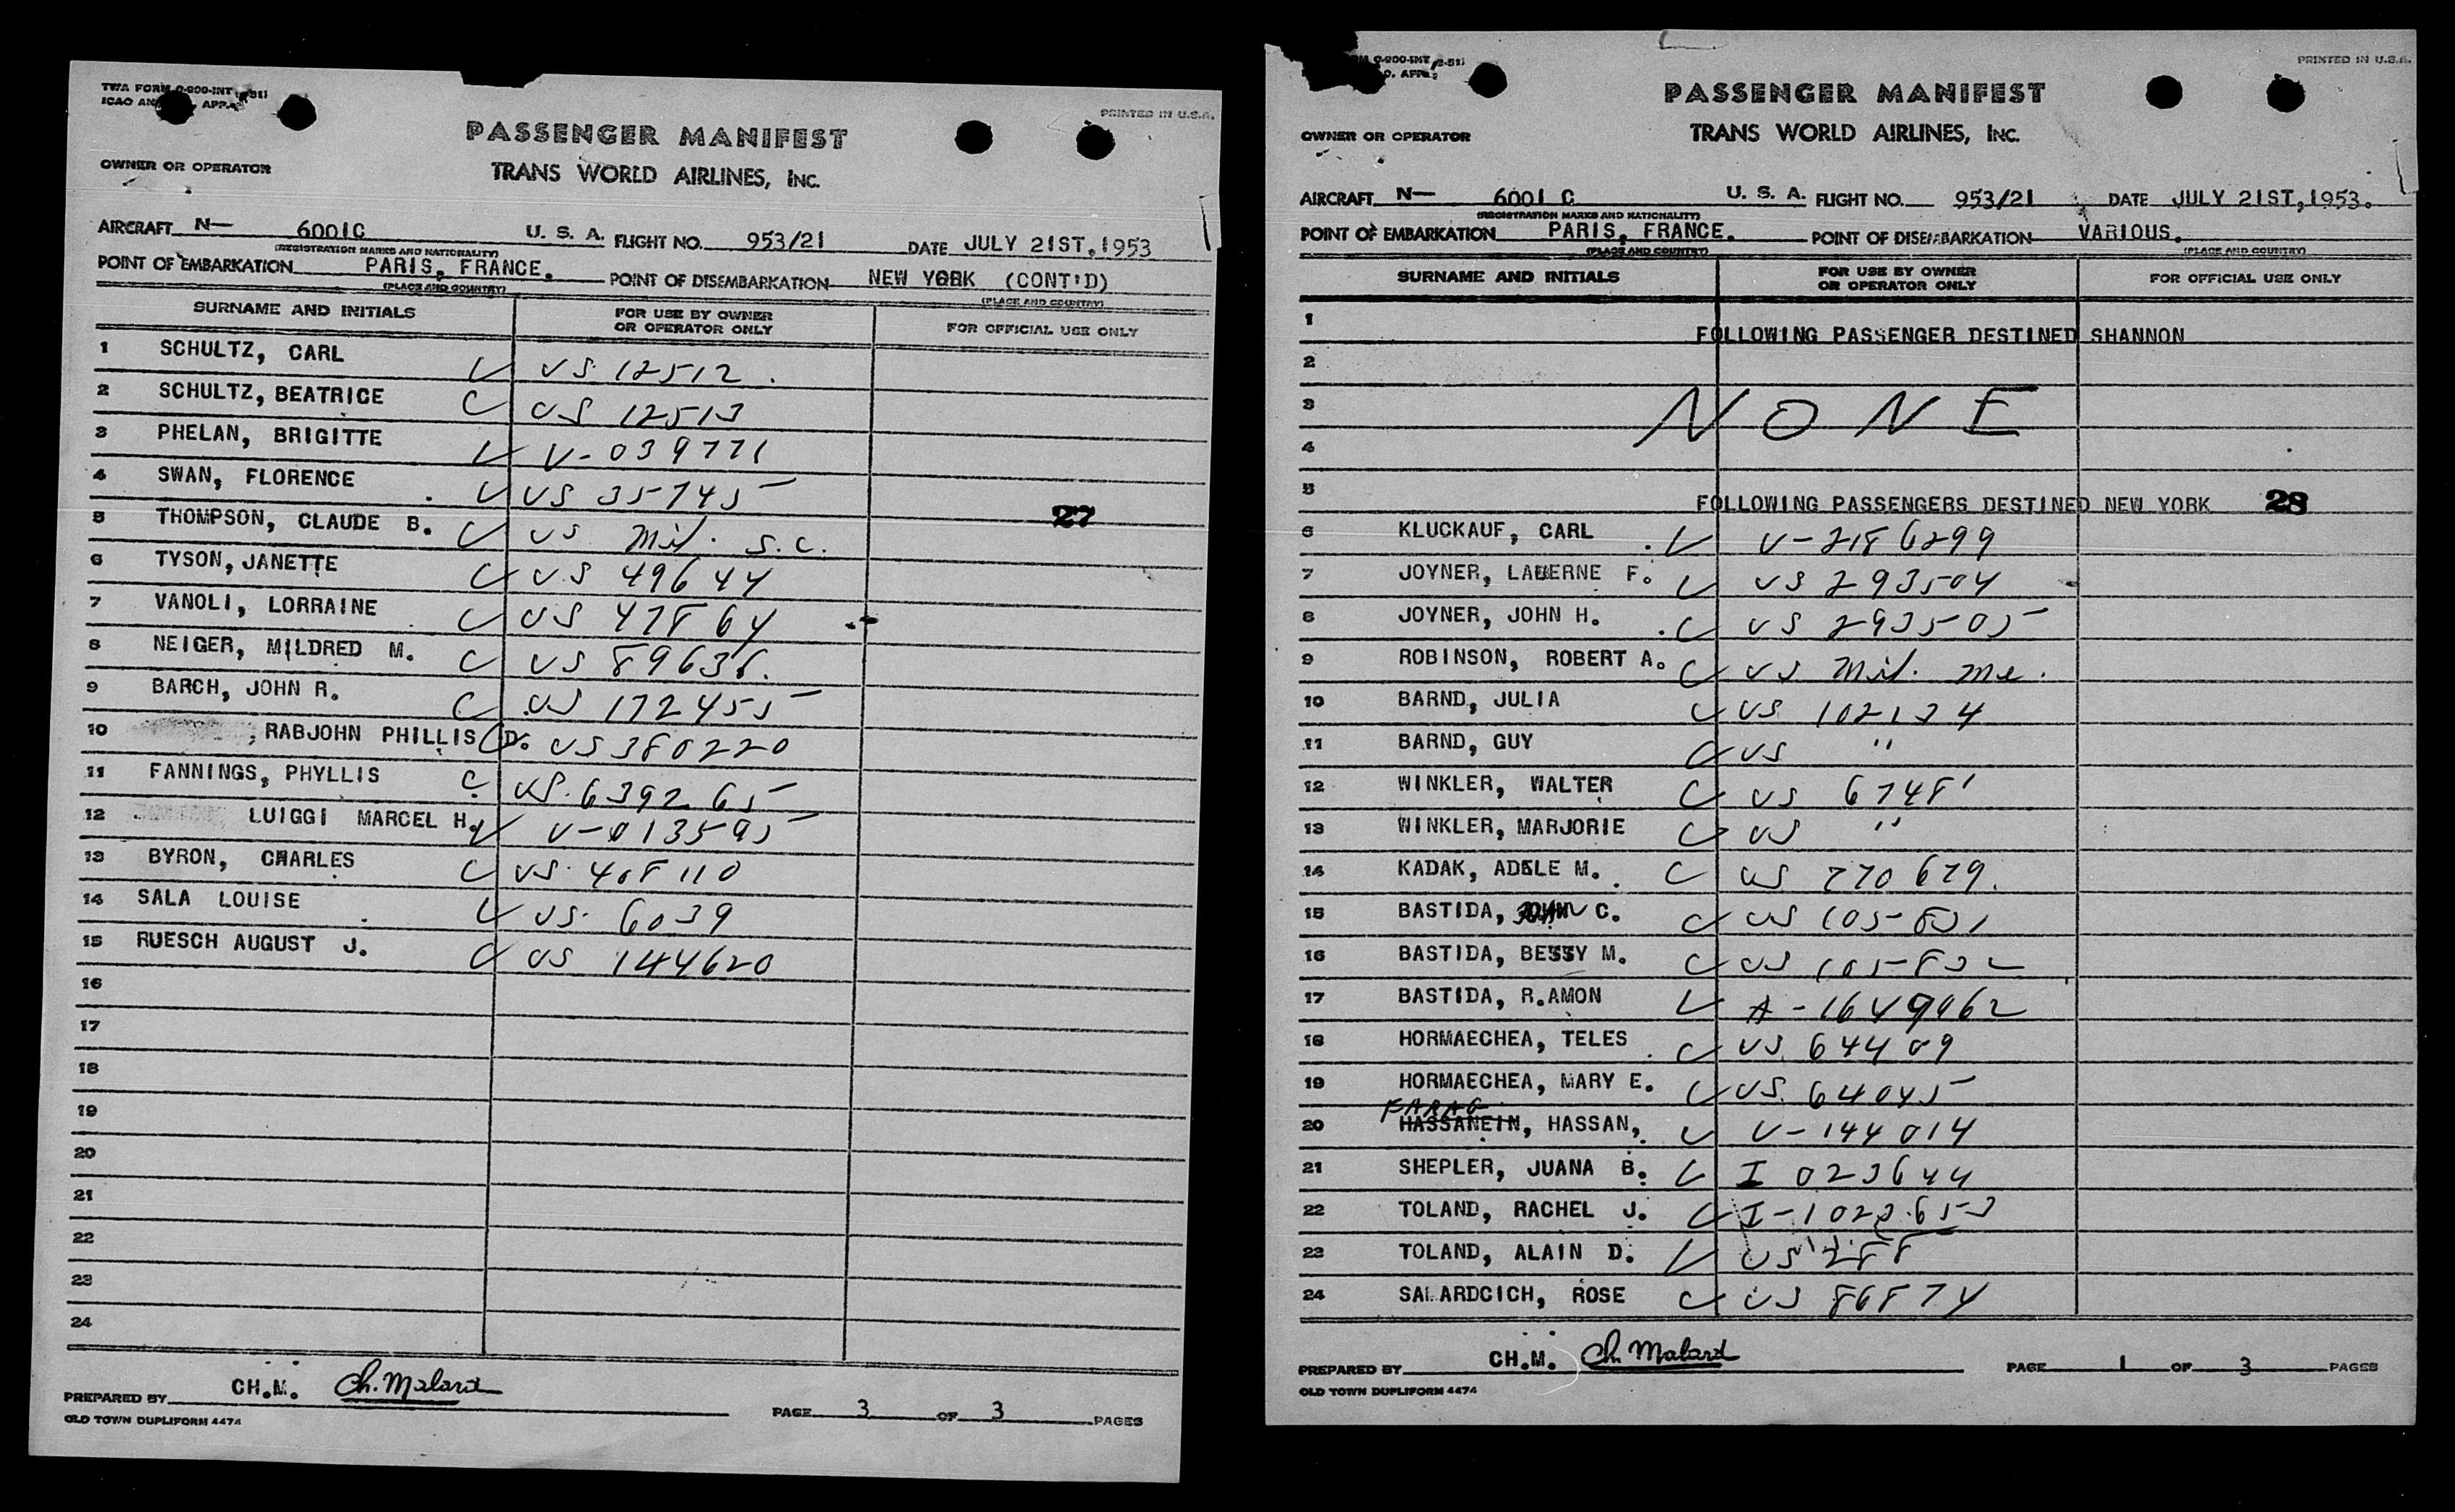 TWA FORM O-900-INT
PRINTED IN U.S.A.
PASSENGER MANIFEST
OWNER OR OPERATOR
TRANS WORLD AIRLINES, INC.
AIRCRAFT N— 6001C U. S. A. FLIGHT NO. 953/21 DATE JULY 21ST,1953
(REGISTRATION MARKS AND NATIONALITY)
POINT OF EMBARKATION PARIS, FRANCE. POINT OF DISEMBARKATION NEW YORK (CONT'D)
(PLACE AND COUNTRY) (PLACE AND COUNTRY)
SURNAME AND INITIALS FOR USE BY OWNER OR OPERATOR ONLY FOR OFFICIAL USE ONLY
1 SCHULTZ, CARL US 12512.
2 SCHULTZ, BEATRICE US 12513
3 PHELAN, BRIGITTE V-039771
4 SWAN, FLORENCE US 35745
27
5 THOMPSON, CLAUDE B. US Mil. S.C.
6 TYSON, JANETTE US 49644
7 VANOLI, LORRAINE US 47864
8 NEIGER, MILDRED M. US 89636.
9 BARCH, JOHN R. US 172455
10 , RABJOHN PHILLIS D. US 380220
11 FANNINGS, PHYLLIS US. 639265
12 LUIGGI MARCEL H. V-013595
13 BYRON, CHARLES US. 408110
14 SALA LOUISE US. 6039
15 RUESCH AUGUST J. US 144620
16
17
18
19
20
21
22
23
24
PREPARED BY CH.M. Ch. Malard PAGE 3 OF 3 PAGES
OLD TOWN DUPLIFORM 4474
PRINTED IN U.S.A.
PASSENGER MANIFEST
OWNER OR OPERATOR
TRANS WORLD AIRLINES, INC.
AIRCRAFT N— 6001 C U. S. A. FLIGHT NO. 953/21 DATE JULY 21ST,1953.
(REGISTRATION MARKS AND NATIONALITY)
POINT OF EMBARKATION PARIS, FRANCE. POINT OF DISEMBARKATION VARIOUS.
(PLACE AND COUNTRY) (PLACE AND COUNTRY)
SURNAME AND INITIALS FOR USE BY OWNER OR OPERATOR ONLY FOR OFFICIAL USE ONLY
1 FOLLOWING PASSENGER DESTINED SHANNON
2
3 NONE
4
5 FOLLOWING PASSENGERS DESTINED NEW YORK 28
6 KLUCKAUF, CARL V-2186299
7 JOYNER, LAUERNE F. US 293504
8 JOYNER, JOHN H. US 293505
9 ROBINSON, ROBERT A. US Mil. Me.
10 BARND, JULIA US 102134
11 BARND, GUY US "
12 WINKLER, WALTER US 67481
13 WINKLER, MARJORIE US "
14 KADAK, ADELE M. US 770679.
15 BASTIDA, JOHN C. US 105831
16 BASTIDA, BESSY M. US 105832
17 BASTIDA, R.AMON A-1649962
18 HORMAECHEA, TELES US 64409
19 HORMAECHEA, MARY E. US. 64045
FARAG
20 HASSANEIN, HASSAN, V-144014
21 SHEPLER, JUANA B. I 023644
22 TOLAND, RACHEL J. I-1023653
23 TOLAND, ALAIN D. US 288
24 SALARDCICH, ROSE US 86874
PREPARED BY CH.M. Ch. Malard PAGE 1 OF 3 PAGES
OLD TOWN DUPLIFORM 4474